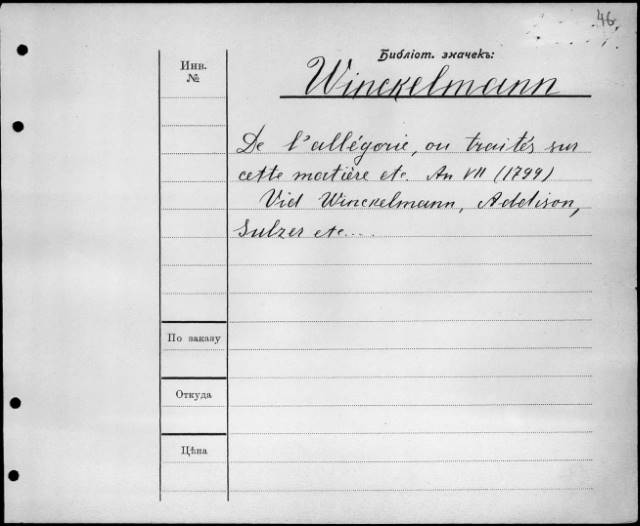 46
Библіот. значекъ:
Инв.
№
Winckelmann
De l'allégorie, ou traités sur
cette matière etc. An VII (1799)
Vid Winckelmann, Addison,
Sulzer etc....
По заказу
Откуда
Цѣна